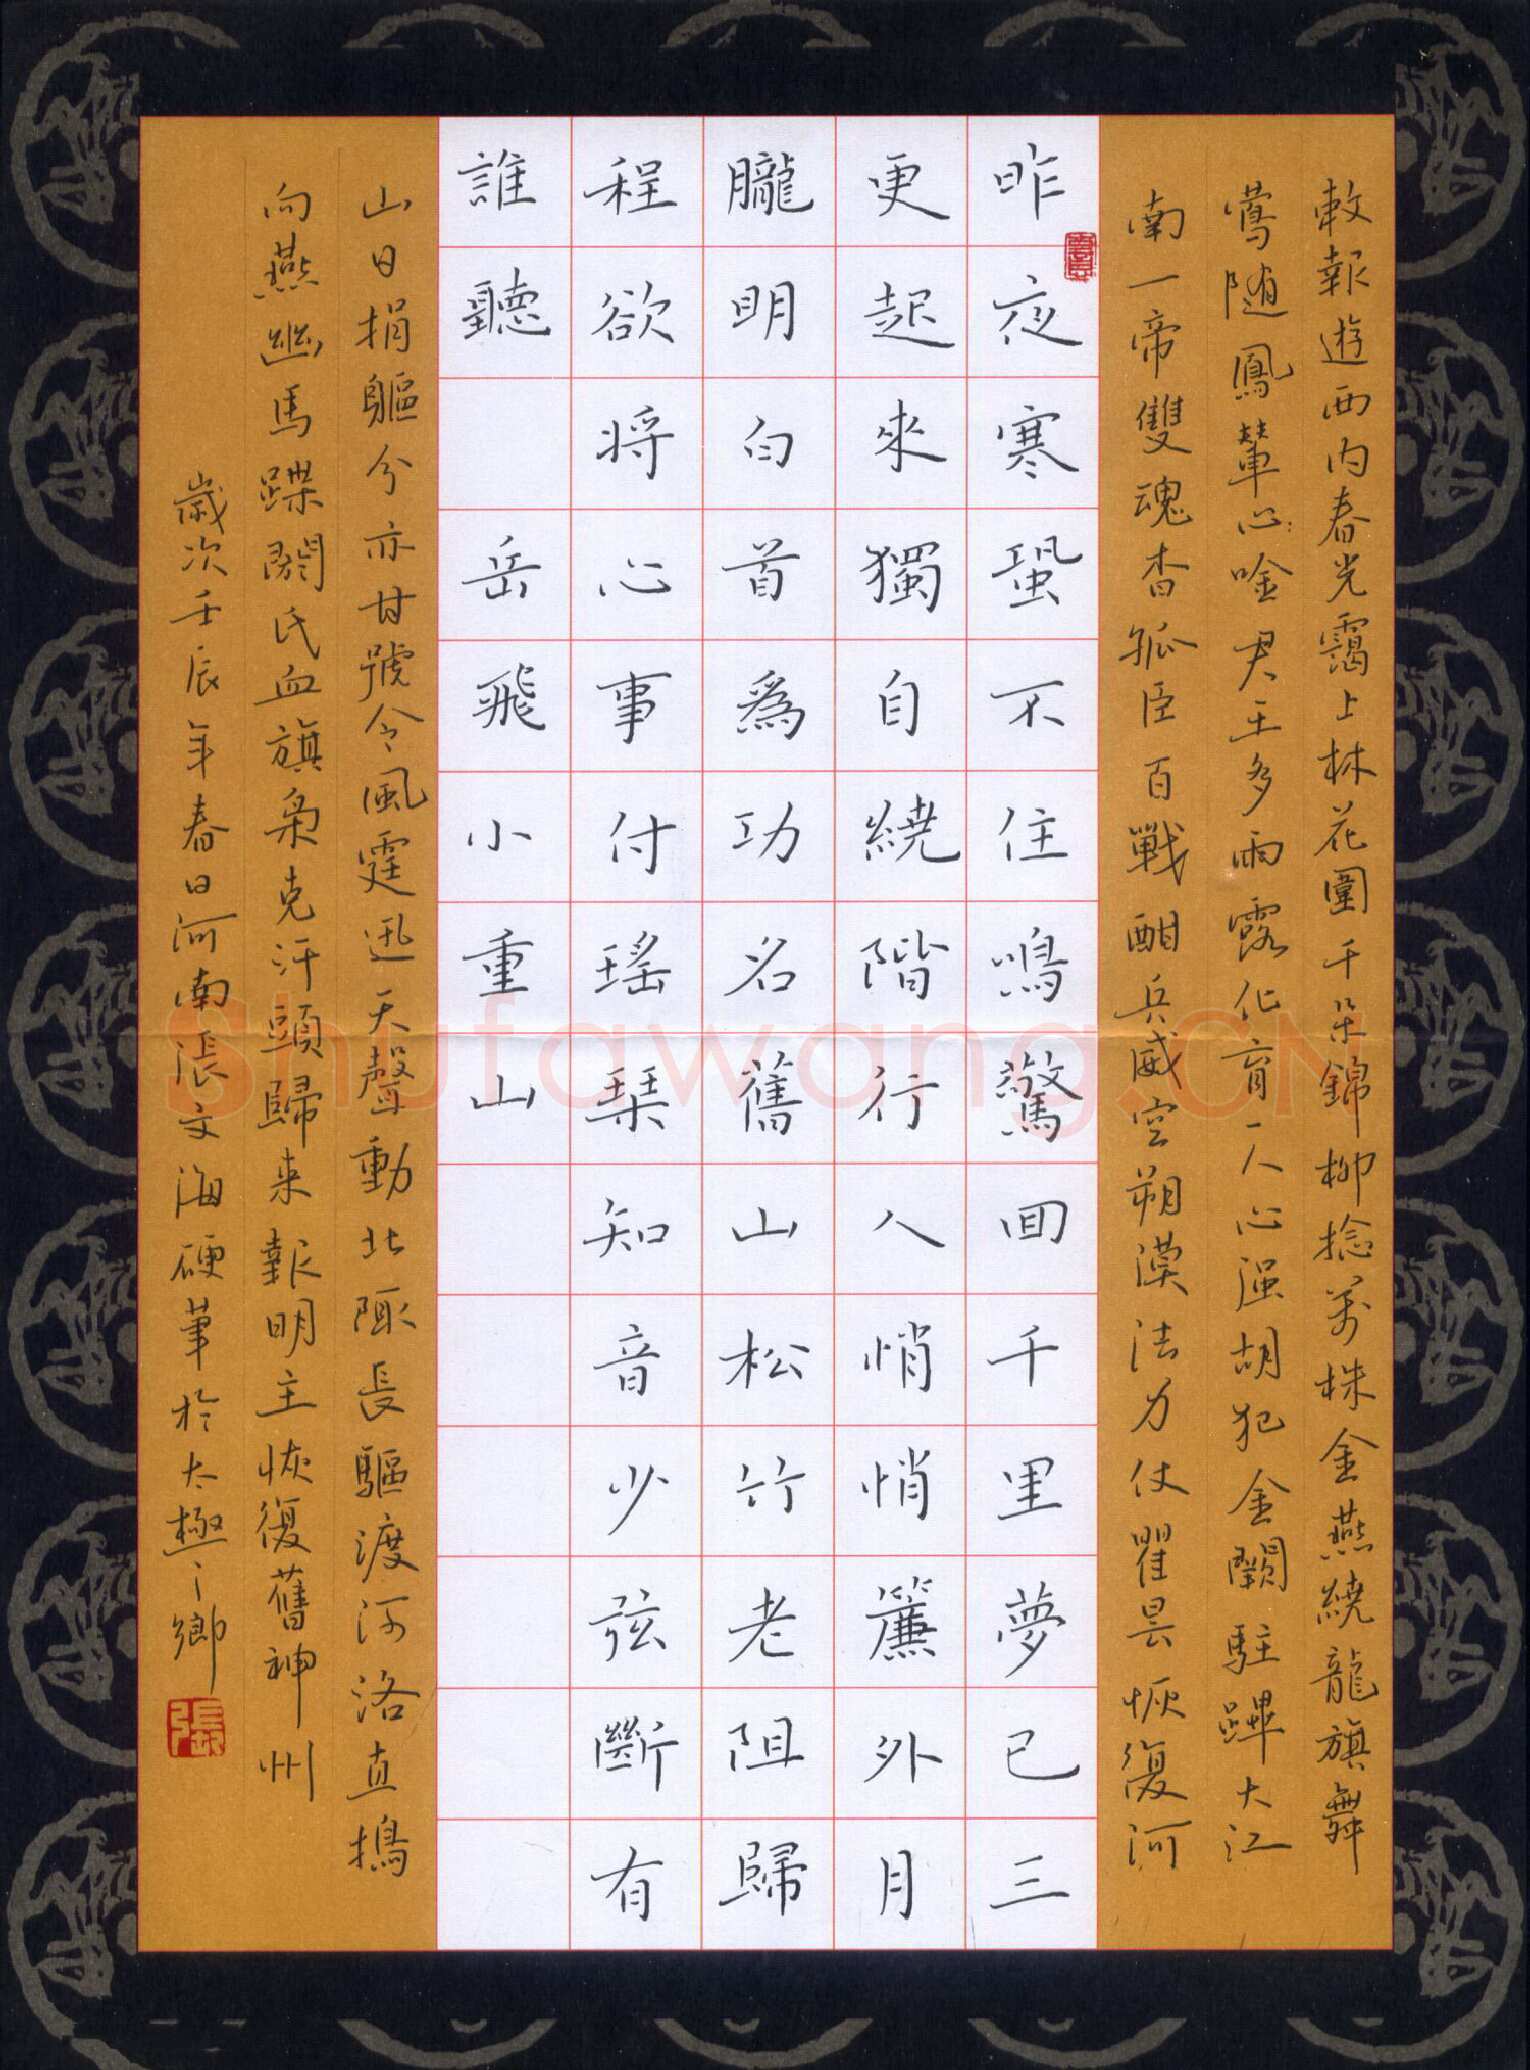 敕報遊西內春光靄上林花圍千朵錦柳捻萬株金燕繞龍旗舞
鶯隨鳳輦心吟君王多雨露化育一人心強胡犯金闕駐蹕大江
南一帝雙魂杳孤臣百戰酣兵威空朔漠法力仗瞿曇恢復河
昨夜寒蛩不住鳴驚回千里夢已三
更起來獨自繞階行人悄悄簾外月
朧明白首爲功名舊山松竹老阻歸
程欲將心事付瑤琴知音少弦斷有
誰聽 岳飛小重山
山日捐軀分亦甘號令風霆迅天聲動北陬長驅渡河洛直搗
向燕幽馬蹀閼氏血旗梟克汗頭歸來報明主恢復舊神州
歲次壬辰年春日河南張文海硬筆於太極之鄉
張
Shufawang.CN